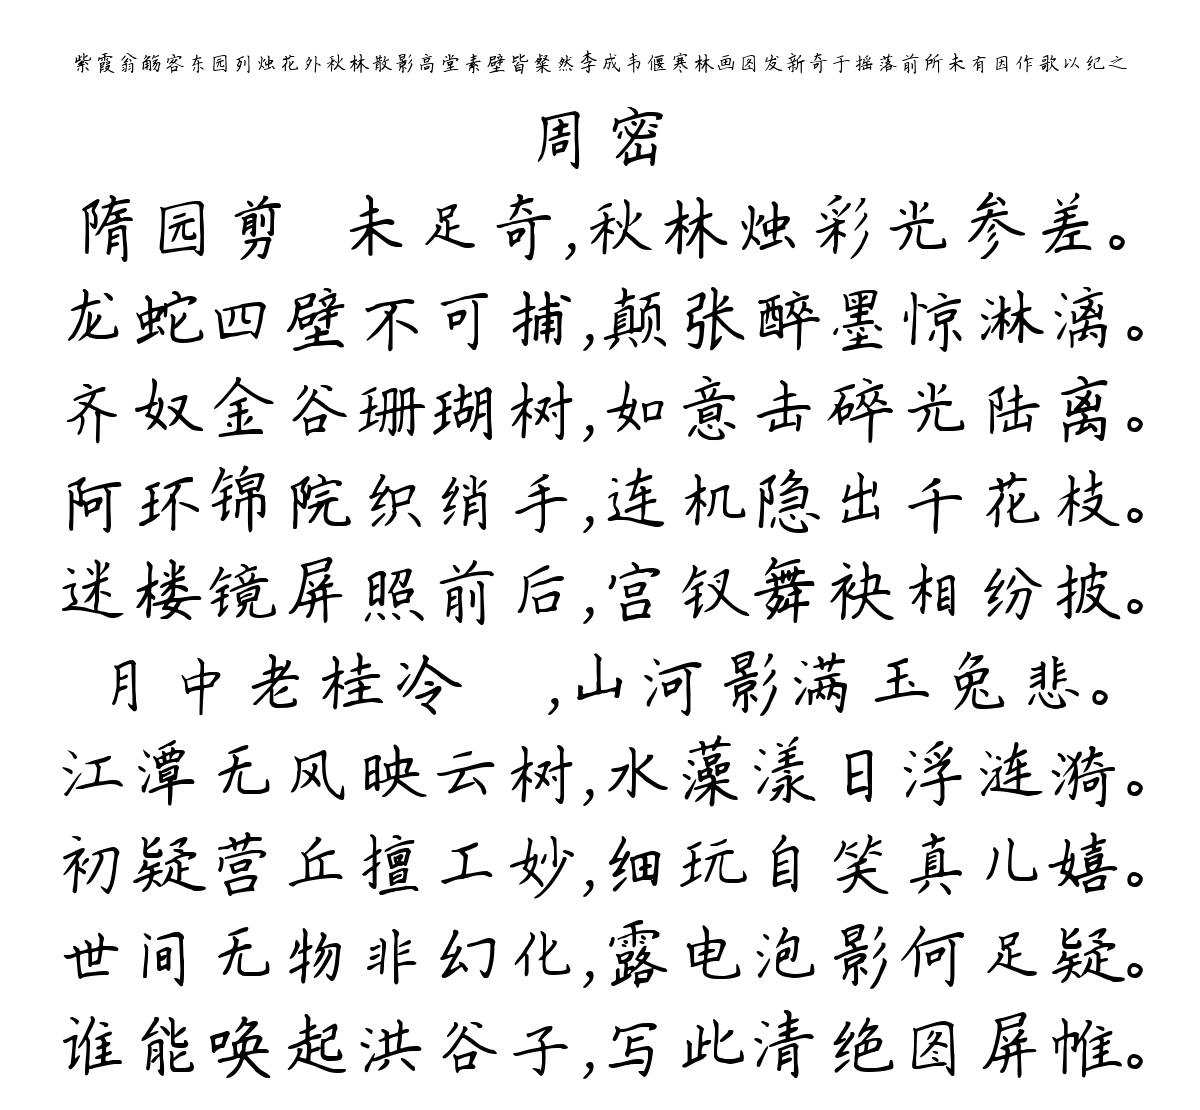 紫霞翁觞客东园列烛花外秋林散影高堂素壁皆粲然李成韦偃寒林画图发新奇于摇落前所未有因作歌以纪之
周密
隋园剪 未足奇,秋林烛彩光参差。
龙蛇四壁不可捕,颠张醉墨惊淋漓。
齐奴金谷珊瑚树,如意击碎光陆离。
阿环锦院织绡手,连机隐出千花枝。
迷楼镜屏照前后,宫钗舞袂相纷披。
月中老桂冷 ,山河影满玉兔悲。
江潭无风映云树,水藻漾日浮涟漪。
初疑营丘擅工妙,细玩自笑真儿嬉。
世间无物非幻化,露电泡影何足疑。
谁能唤起洪谷子,写此清绝图屏帷。